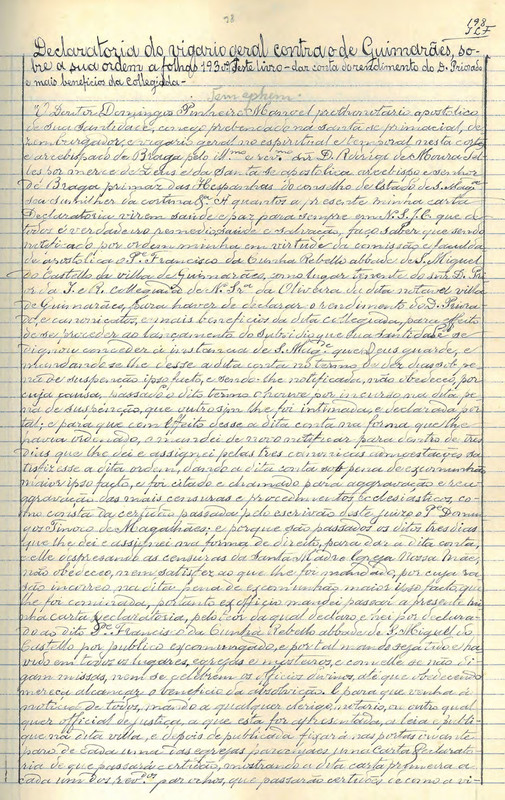 198
Declaratoria do vigario geral contra o de Guimarães, so-
bre a sua ordem a folhas 193 vº deste livro - dar conta do rendimento do D. Priorado
e mais beneficios da Collegiada -
O Doutor Domingos Pinheiro Manoel prothonotario apostolico
de sua Santidade, conego prebendado na santa sé primacial, de-
zembargador, e vigario geral no espiritual e temporal nesta corte
e arcebispado de Braga pelo Illmo e revmo snr D. Rodrigo de Moura Tel-
les por mercê de Deus e da Santa sé apostolica arcebispo e senhor
de Braga primaz das Hespanhas do conselho de Estado de S. Magde e
seu sumilher da cortina &a. A quantos a presente minha carta
Declaratoria virem saude e paz para sempre em N. S. J. C. que de
todos é verdadeiro remedio, saude e salvação, faço saber que sendo
notificado por ordem minha em virtude da comissão e faculda-
de apostolica o Pe Francisco da Cunha Rebello abbade de S. Miguel
do Castello da villa de Guimarães, como lugar tenente do snr D. Pri-
or da I. e R. Collegiada de N. Srª da Oliveira da dita notavel villa
de Guimarães, para haver de declarar o rendimento do D. Priora-
do, e canonicatos, e mais beneficios da dita collegiada, para effeito
de se proceder ao lançamento do subsidio que sua Santidade se
dignou conceder á instancia de S. Magde que Deus guarde, e
mandando-se lhe desse a dita conta no termo de dez dias sob pe-
na de suspenção ipso facto, e sendo-lhe notificada, não obedeceo, por
cuja causa, passado o dito termo o houve por incurso na dita pe-
na de suspenção, que outrosim lhe foi intimada e declarada por
tal; e para que com effeito desse a dita conta na forma que lhe
havia ordenado, o mandei de novo notificar para dentro de tres
dias que lhe dei e assignei pelas tres canonicas amoestações sa-
tisfizesse a dita ordem, dando a dita conta sob pena de excomunhão
maior ipso facto, e foi citado e chamado para aggravação e rea-
ggravação das mais censuras e procedimentos ecclesiasticos, co-
mo consta da certidão passada pelo escrivão deste juizo o Pe Domin-
gos Tinoco de Magalhães; e porque são passados os ditos tres dias
que lhe dei e assignei na forma de direito, para dar a dita conta,
elle despresando as censuras da Santa Madre Egreja Nossa Mãe,
não obedeceo, nem satisfez ao que lhe foi mandado, por cuja ra-
são incorreo na dita pena de excomunhão maior ipso facto, que
lhe foi cominada, portanto ex officio mandei passar a presente mi-
nha carta declaratoria, pelo teor da qual declaro e hei por declara-
do ao dito Pe Francisco da Cunha Rebello abbade de S. Miguel do
Castello por publico excomungado, e por tal mando seja tido e ha-
vido em todos os lugares, egrejas e mosteiros, e com elle se não di-
gam missas, nem se celebrem os officios divinos, até que obedecendo
mereça alcançar o beneficio da absolvição. E para que venha á
noticia de todos, mando a qualquer clerigo, notario, ou outro qual
quer official de justiça, a que esta for apresentada, a leia e publi-
que na dita villa, e depois de publicada fixará nas portas
de cada uma das egrejas parochiaes uma carta declarato-
ria de que passará certidão, mostrando a dita carta primeira a
cada um dos revdos parochos, que passarão certidão, e como a vi-